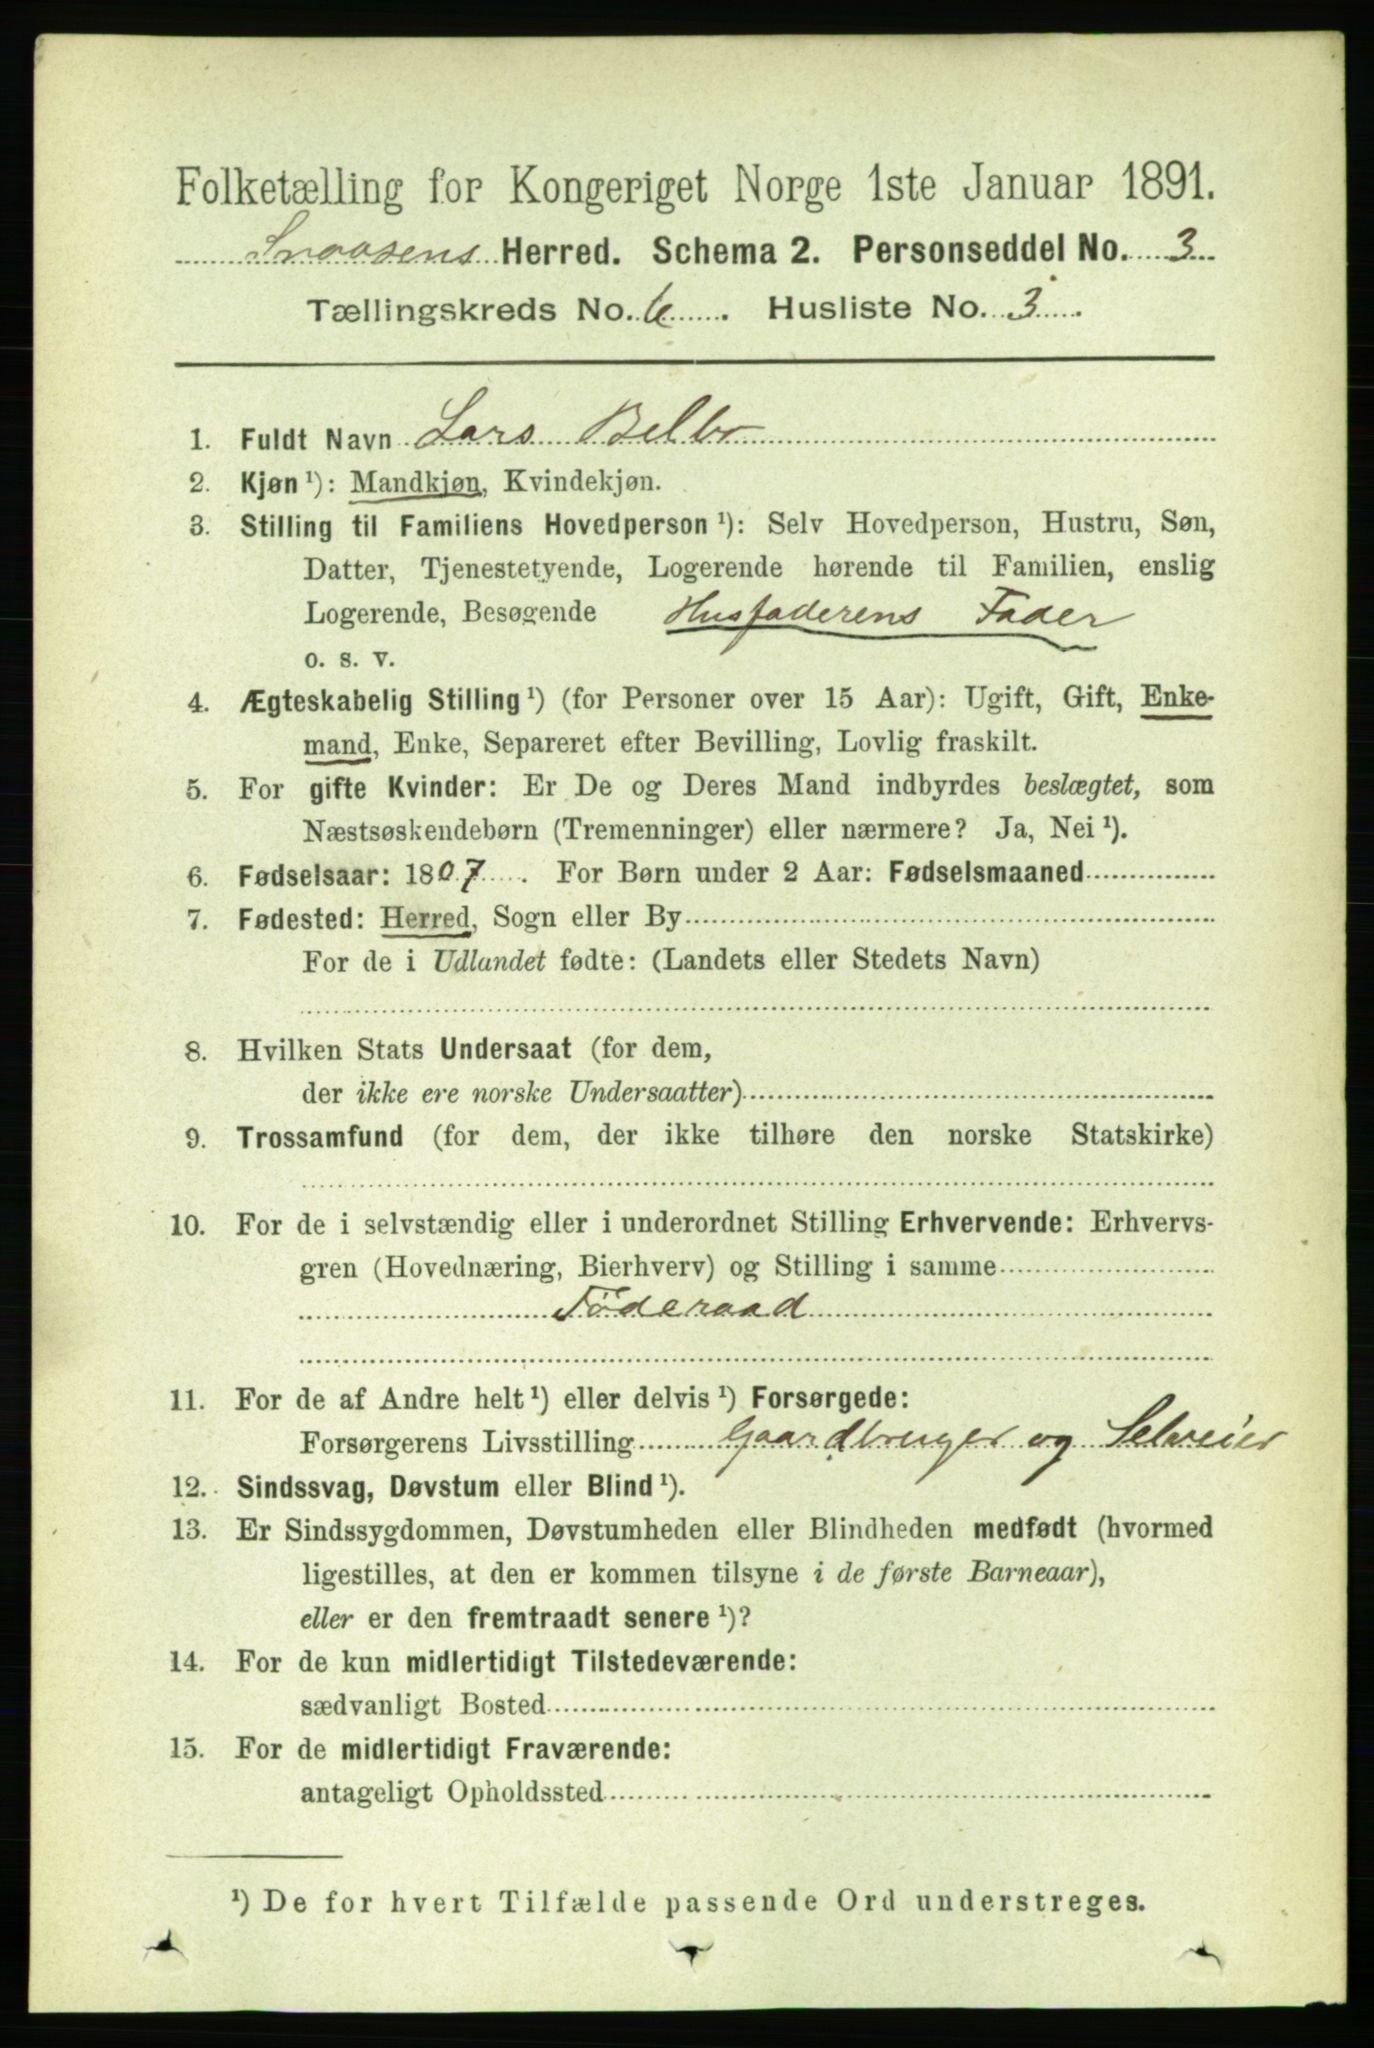 Folketælling for Kongeriget Norge 1ste Januar 1891.
Snaasens Herred. Schema 2. Personseddel No. 3
Tællingskreds No. 6. Husliste No. 3.
1. Fuldt Navn Lars Belbo
2. Kjøn ¹): Mandkjøn, Kvindekjøn.
3. Stilling til Familiens Hovedperson ¹): Selv Hovedperson, Hustru, Søn,
Datter, Tjenestetyende, Logerende hørende til Familien, enslig
Logerende, Besøgende Husfaderens Fader
o. s. v.
4. Ægteskabelig Stilling ¹) (for Personer over 15 Aar): Ugift, Gift, Enke-
mand, Enke, Separeret efter Bevilling, Lovlig fraskilt.
5. For gifte Kvinder: Er De og Deres Mand indbyrdes beslægtet, som
Næstsøskendebørn (Tremenninger) eller nærmere? Ja, Nei ¹).
6. Fødselsaar: 1807. For Børn under 2 Aar: Fødselsmaaned
7. Fødested: Herred, Sogn eller By
For de i Udlandet fødte: (Landets eller Stedets Navn)
8. Hvilken Stats Undersaat (for dem,
der ikke ere norske Undersaatter)
9. Trossamfund (for dem, der ikke tilhøre den norske Statskirke)
10. For de i selvstændig eller i underordnet Stilling Erhvervende: Erhvervs-
gren (Hovednæring, Bierhverv) og Stilling i samme
Föderaad
11. For de af Andre helt ¹) eller delvis ¹) Forsørgede:
Forsørgerens Livsstilling Gaardbruger og Selveier
12. Sindssvag, Døvstum eller Blind ¹).
13. Er Sindssygdommen, Døvstumheden eller Blindheden medfødt (hvormed
ligestilles, at den er kommen tilsyne i de første Barneaar),
eller er den fremtraadt senere ¹)?
14. For de kun midlertidigt Tilstedeværende:
sædvanligt Bosted
15. For de midlertidigt Fraværende:
antageligt Opholdssted
¹) De for hvert Tilfælde passende Ord understreges.